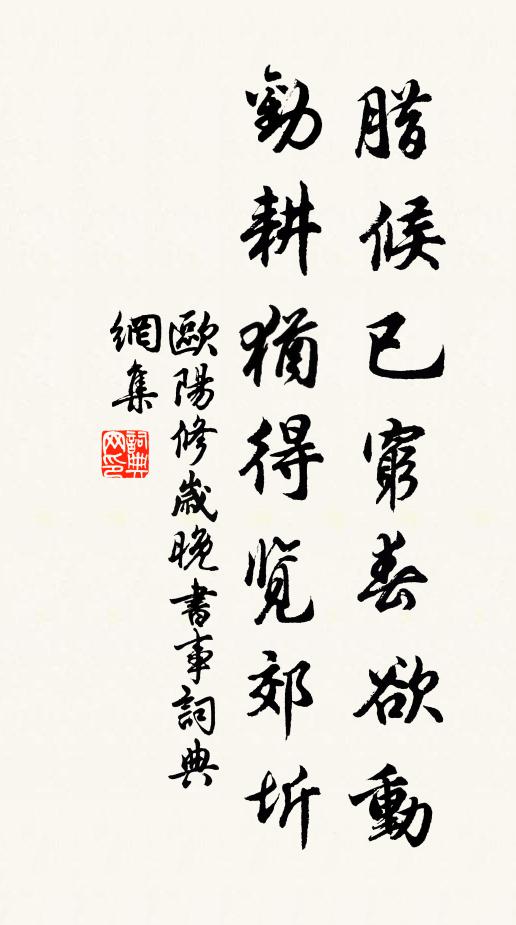 腊候已窮春欲動
勸耕猶得覽郊圻
歐陽修歲晚書事詞典
網集
詞典
网印